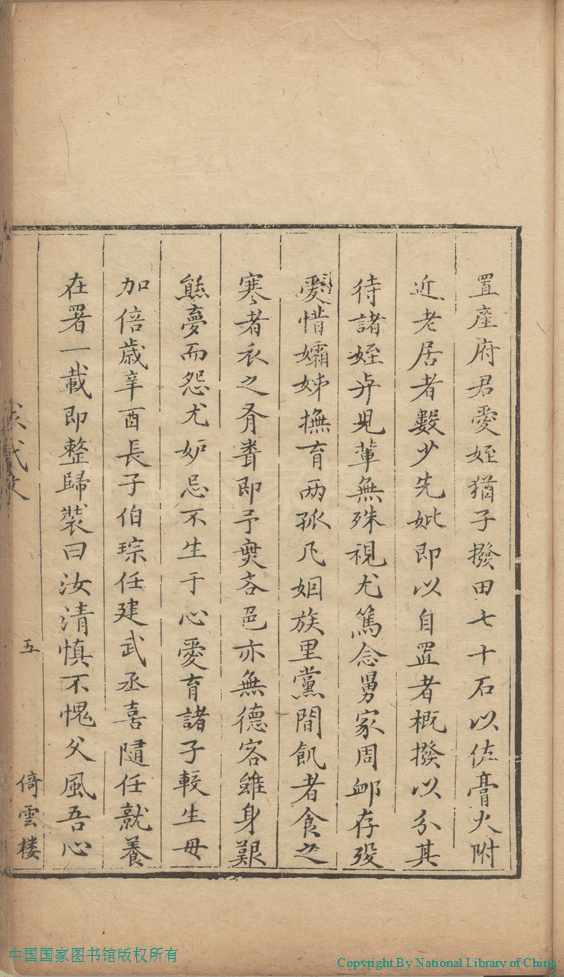 置產府君愛姪猶子撥田七十石以佐膏火附
近老居者數少先妣即以自置者概撥以分其
待諸姪弁見輩無殊視尤篤念舅家周卹存歿
愛惜孀姊撫育兩孤凡姻族里黨間飢者食之
寒者衣之胥賚即予爽吝邑亦無德容雖身艱
熊夢而怨尤妒忌不生于心愛育諸子較生母
加倍歲辛酉長子伯琮任建武丞喜隨任就養
在署一載即整歸裝曰汝清慎不愧父風吾心
五
倚雲樓
中国国家图书馆版权所有
Copyright By National Library of China